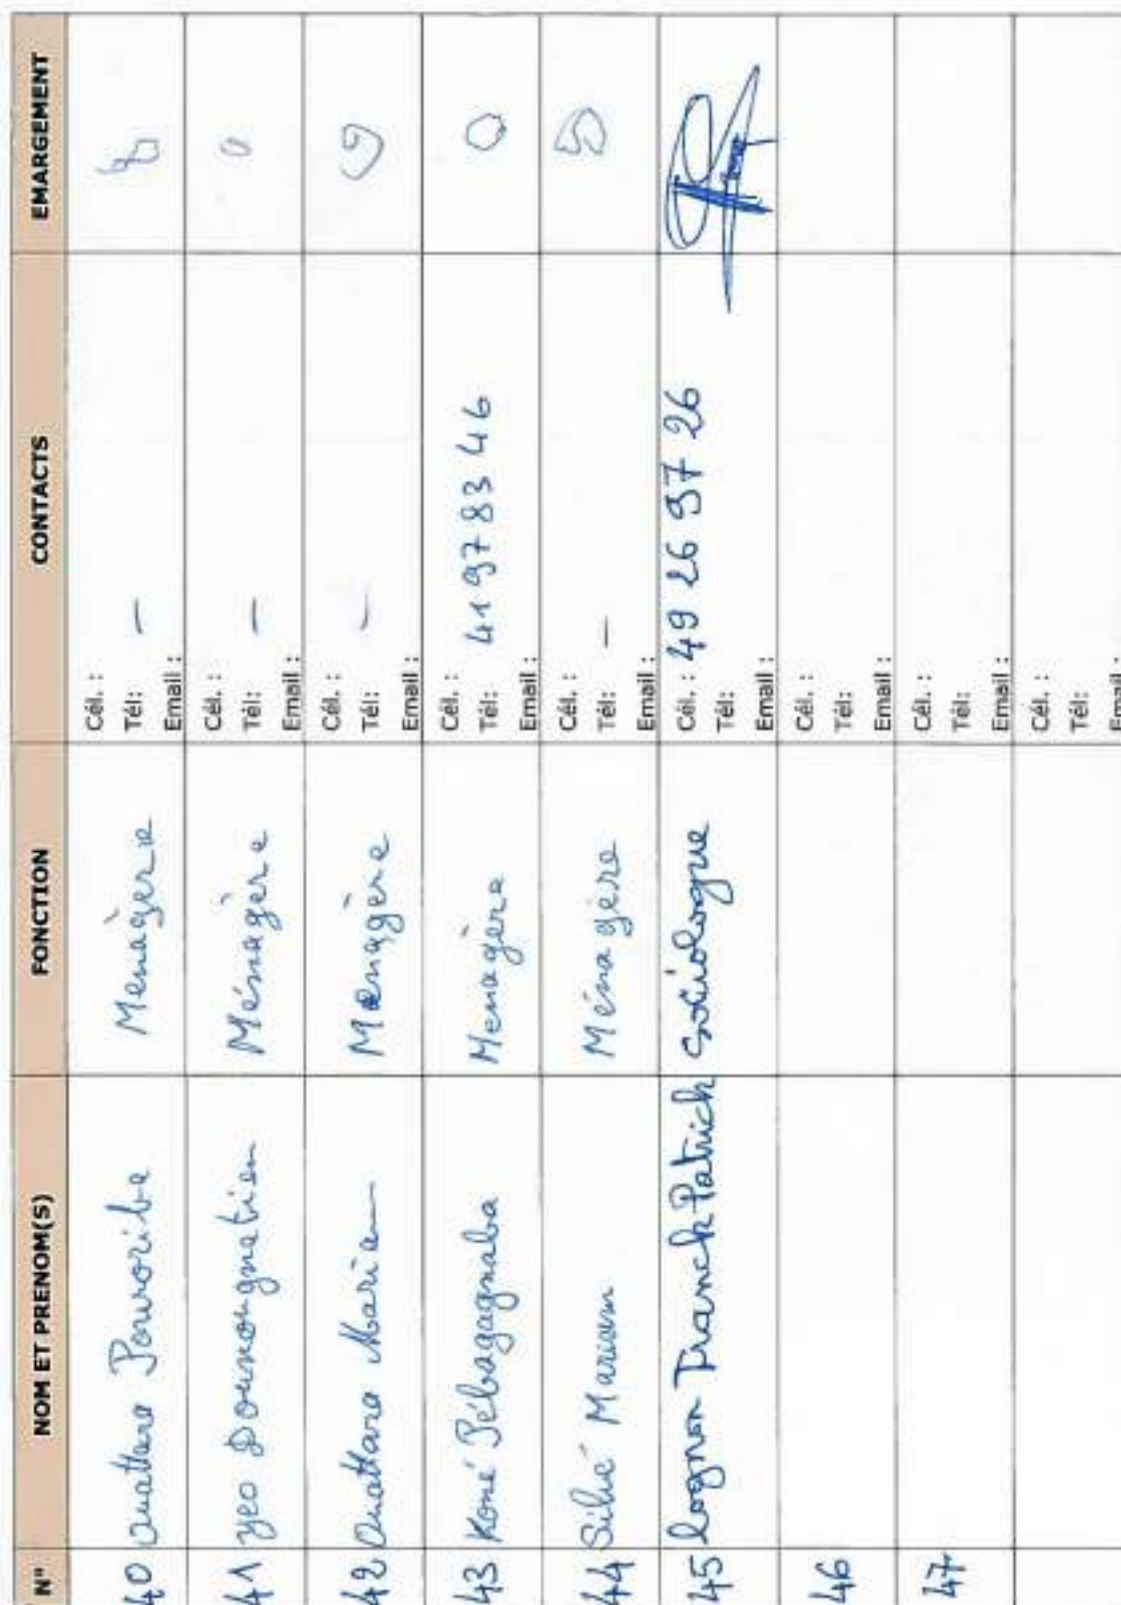 N° NOM ET PRENOM(S) FONCTION CONTACTS EMARGEMENT
40 Ouattara Pourribe Menagère Cél. : 
Tél: —
Email :
41 yeo Dounongnatien Ménagère Cél. :
Tél: —
Email :
42 Ouattara Mariam Menagère Cél. :
Tél: —
Email :
43 Koné Pébagagnaba Menagère Cél. :
Tél: 41 97 83 46
Email :
44 Silué Mariam Ménagère Cél. :
Tél: —
Email :
45 Lognon Franck Patrick Sociologue Cél. : 49 26 97 26
Tél:
Email :
46 Cél. :
Tél:
Email :
47 Cél. :
Tél:
Email :
Cél. :
Tél:
Email :